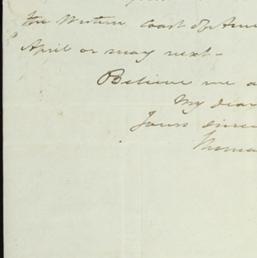 the Western Coast of Amer
April or May next -
Believe me a
My dear
Yours sincer
Thomas